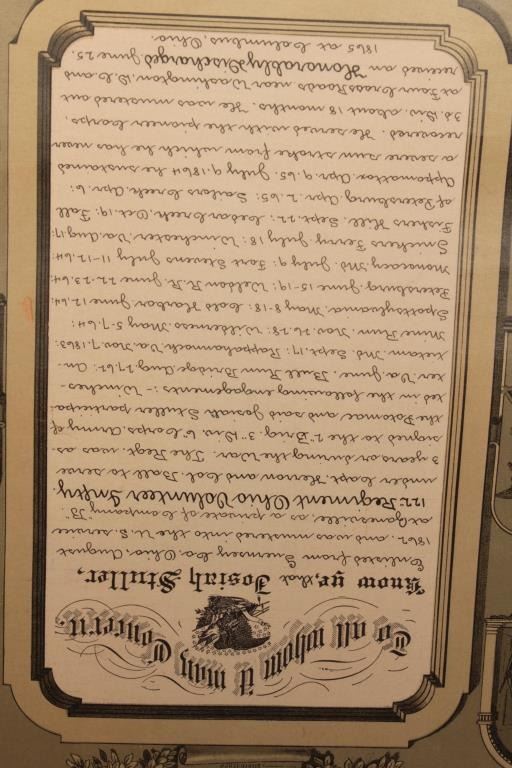 To all whom it may Concern.
Know ye, that Josiah Stuller,
Enlisted from Guernsey Co. Ohio, August
1862. and was mustered into the U. S. service
at Zanesville, as a private of Company "B"
122nd Regiment Ohio Volunteer Inftry.
under Capt. Herron and Col. Ball to serve
3 years or during the War. The Regt. was as-
signed to the 2" Brig. 3" Div. 6" Corps. Army of
the Potomac and said Josiah Stuller participa-
ted in the following engagements:- Winches-
ter Va. June. Bull Run Bridge Aug. 27, 62: An-
tietam. Md. Sept. 17: Rappahannock Va. Nov. 7, 1863:
Mine Run Nov. 26-28: Wilderness May 5-7, 64:
Spottsylvania. May 8-18: Cold Harbor June 12, 64.
Petersburg. June 15-19: Weldon R.R. June 22-23, 64:
Monocacy Md. July 9: Fort Stevens July 11-12, 64:
Snickers Ferry July 18: Winchester Va. Aug. 17:
Fishers Hill. Sept. 22: Cedar Creek Oct. 19: Fall
of Petersburg Apr. 2, 65: Sailors Creek Apr. 6:
Appomattox Apr. 9, 65. July 9, 1864 he sustained
a severe sun stroke from which he has never
recovered. He served with the pioneer Corps.
3d. Div. about 18 months. He was mustered out
at Four Cross Roads near Washington, D.C. and
received an Honorably Discharged June 25.
1865 at Columbus, Ohio.